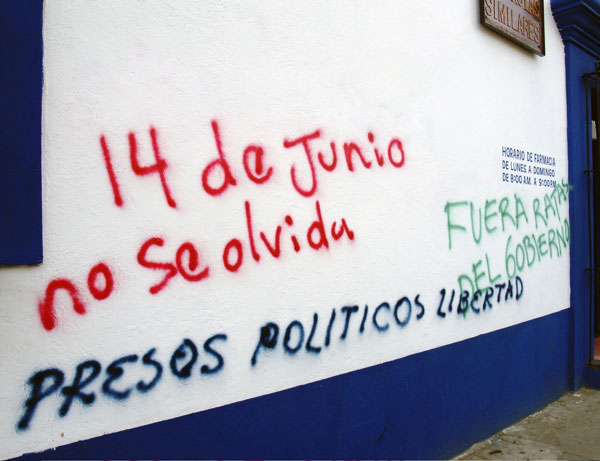 SIMILARES
14 de Junio
no se olvida
PRESOS POLITICOS LIBERTAD
HORARIO DE FARMACIA
DE LUNES A DOMINGO
DE 8:00 AM. A 9:00PM
FUERA RATAS
DEL GOBIERNO